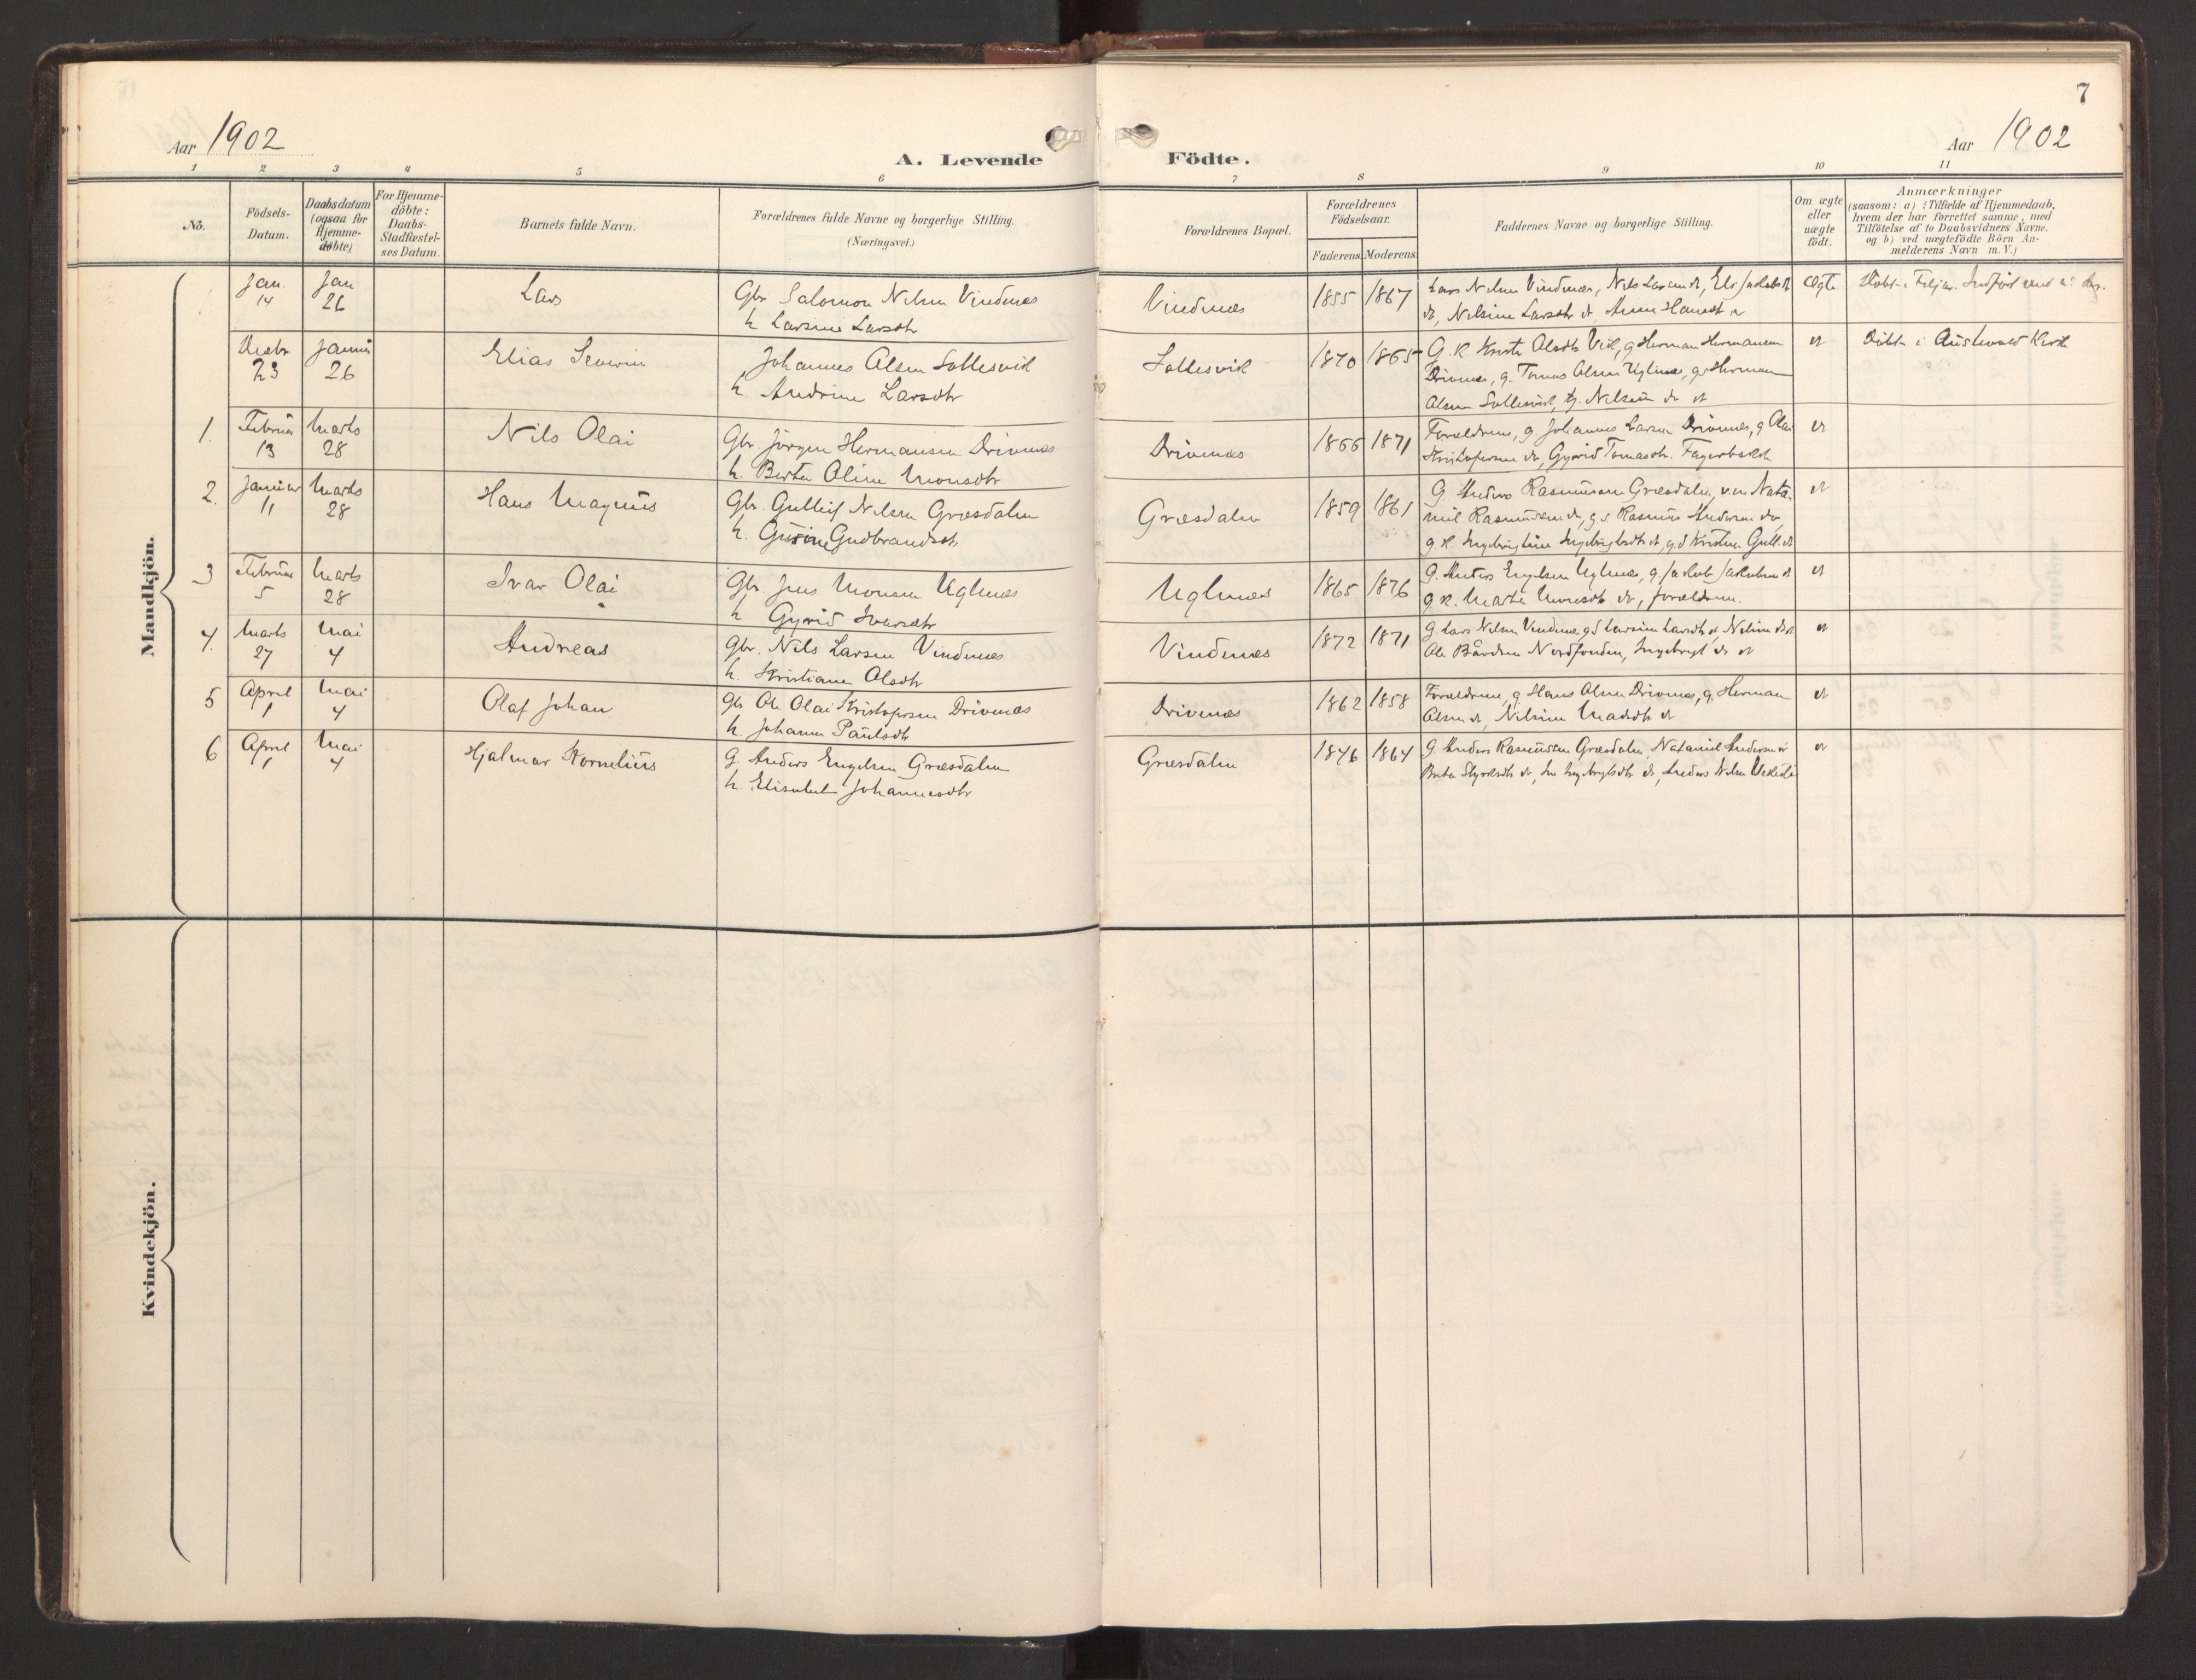 7
Aar 1902
A. Levende Födte.
Aar 1902
1 2 3 4 5 6 7 8 9 10 11
No.
Födsels-
Datum.
Daabsdatum
(ogsaa for
Hjemme-
döbte)
For Hjemme-
döbte:
Daabs-
Stadfæstel-
ses Datum.
Barnets fulde Navn.
Forældrenes fulde Navne og borgerlige Stilling.
(Næringsvei.)
Forældrenes Bopæl.
Forældrenes
Födselsaar.
Faderens. Moderens.
Faddernes Navne og borgerlige Stilling.
Om ægte
eller
uægte
födt.
Anmærkninger
(saasom: a) i Tilfælde af Hjemmedaab,
hvem der har forrettet samme, med
Tilföielse af to Daabsvidners Navne.
og b) ved uægtefödte Börn An-
melderens Navn m.V.)
Mandkjön.
Jan. 14
Jan 26
Lars
Gbr Salomon Nilsen Vindenes
h Larsine Larsdtr
Vindenes
1855 1867
Lars Nilsen Vindenes, Nils Larsen dr, Eli Jakobsdt
dr, Nelsine Larsdtr dr, Anna Hansdtr dr
Ægte
Decbr 23
Januar 26
Elias Severin
Johannes Olsen Sollesvik
h Andrine Larsdtr
Sollesvik
1870 1865
G. K Kirsti Olsdtr Vik, g Herman Hermansen
Drivenes, g. Tomas Olsen Uglenes, gs Herman
Olsen Sollesvik, tj. Nelsine dr dr
dr
Döbt i Austevold Kirke
1. Februar 13
Marts 28
Nils Olai
Gbr. Jörgen Hermansen Drivenes
h. Berta Oline Monsdtr
Drivenes
1866 1871
Forældrene, g Johannes Larsen Drivenes, g Olai
Kristofersen dr, Gyrid Tomasdtr. Fagerbakk
dr
2. Januar 11
Marts 28
Hans Magnus
Gbr. Gulleif Nilsen Græsdalen
h. Gurine Gudbrandsdtr
Græsdalen
1859 1861
G. Anders Rasmussen Græsdalen, u.m Nata-
niel Rasmussen dr, g.s Rasmus Andersen dr,
g.k. Ingebrigtine Ingebrigtsdtr dr, g.d Kristine Gull. dr
dr
3 Februar 5
Marts 28
Ivar Olai
Gbr Jens Monsen Uglenes
h Gyrid Ivarsdtr
Uglenes
1865 1876
G. Anders Engelsen Uglenes, g Jakob Jakobsen dr
g.k. Marta Monsdtr dr, forældrene.
dr
4. Marts 27
Mai 4
Andreas
Gbr. Nils Larsen Vindenes
h. Kristiane Olsdtr
Vindenes
1872 1871
G. Lars Nilsen Vindenes, gd Larsine Larsdtr dr, Nelsine dr dr
Ole Bårdsen Nordfonden, Ingebrigt dr dr
dr
5 April 1
Mai 4
Olaf Johan
Gbr Ole Olai Kristofersen Drivenes
h. Johanna Paulsdtr
Drivenes
1862 1858
Forældrene, g Hans Olsen Drivenes, g. Herman
Olsen dr, Nilsine Madsdtr dr
dr
6 April 1
Mai 4
Hjalmar Kornelius
G. Anders Engelsen Græsdalen
h. Elisabet Johannesdtr
Græsdalen
1846 1864
G. Anders Rasmussen Græsdalen, Nataniel Andersen dr
Berta Styrksdtr dr, Ingebrigtsdtr dr, Anders Nilsen
dr
Kvindekjön.